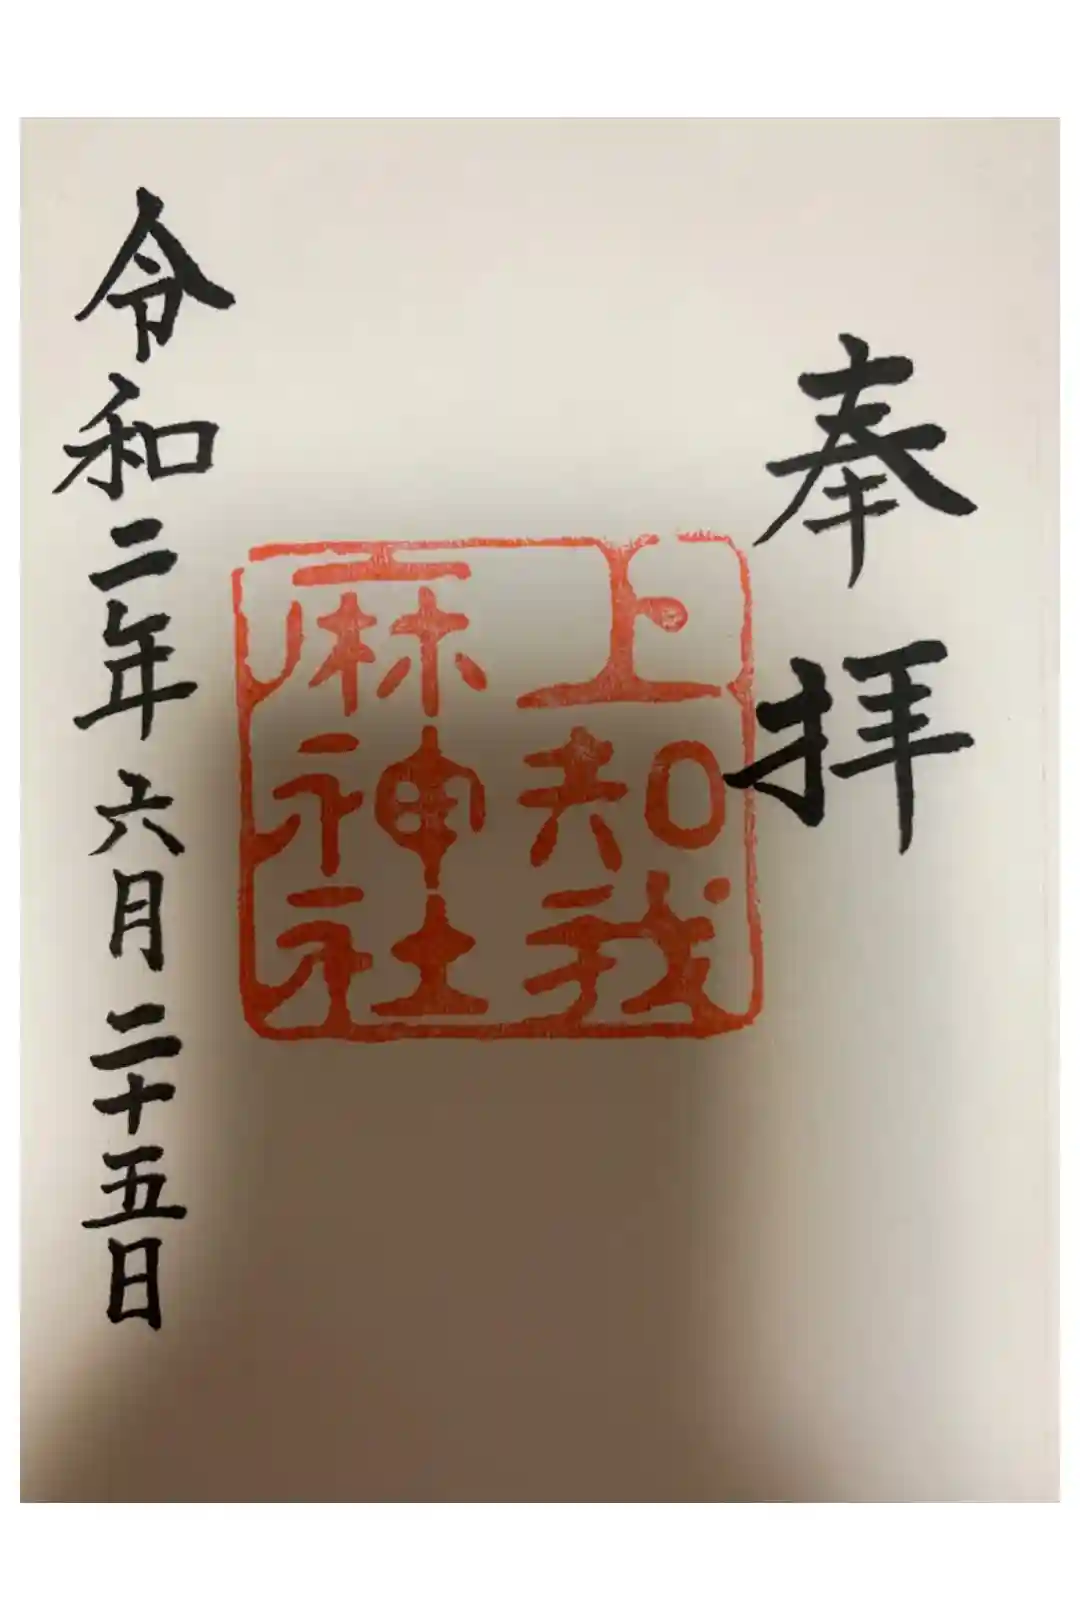 奉拝
上知我
麻神社
令和二年六月二十五日